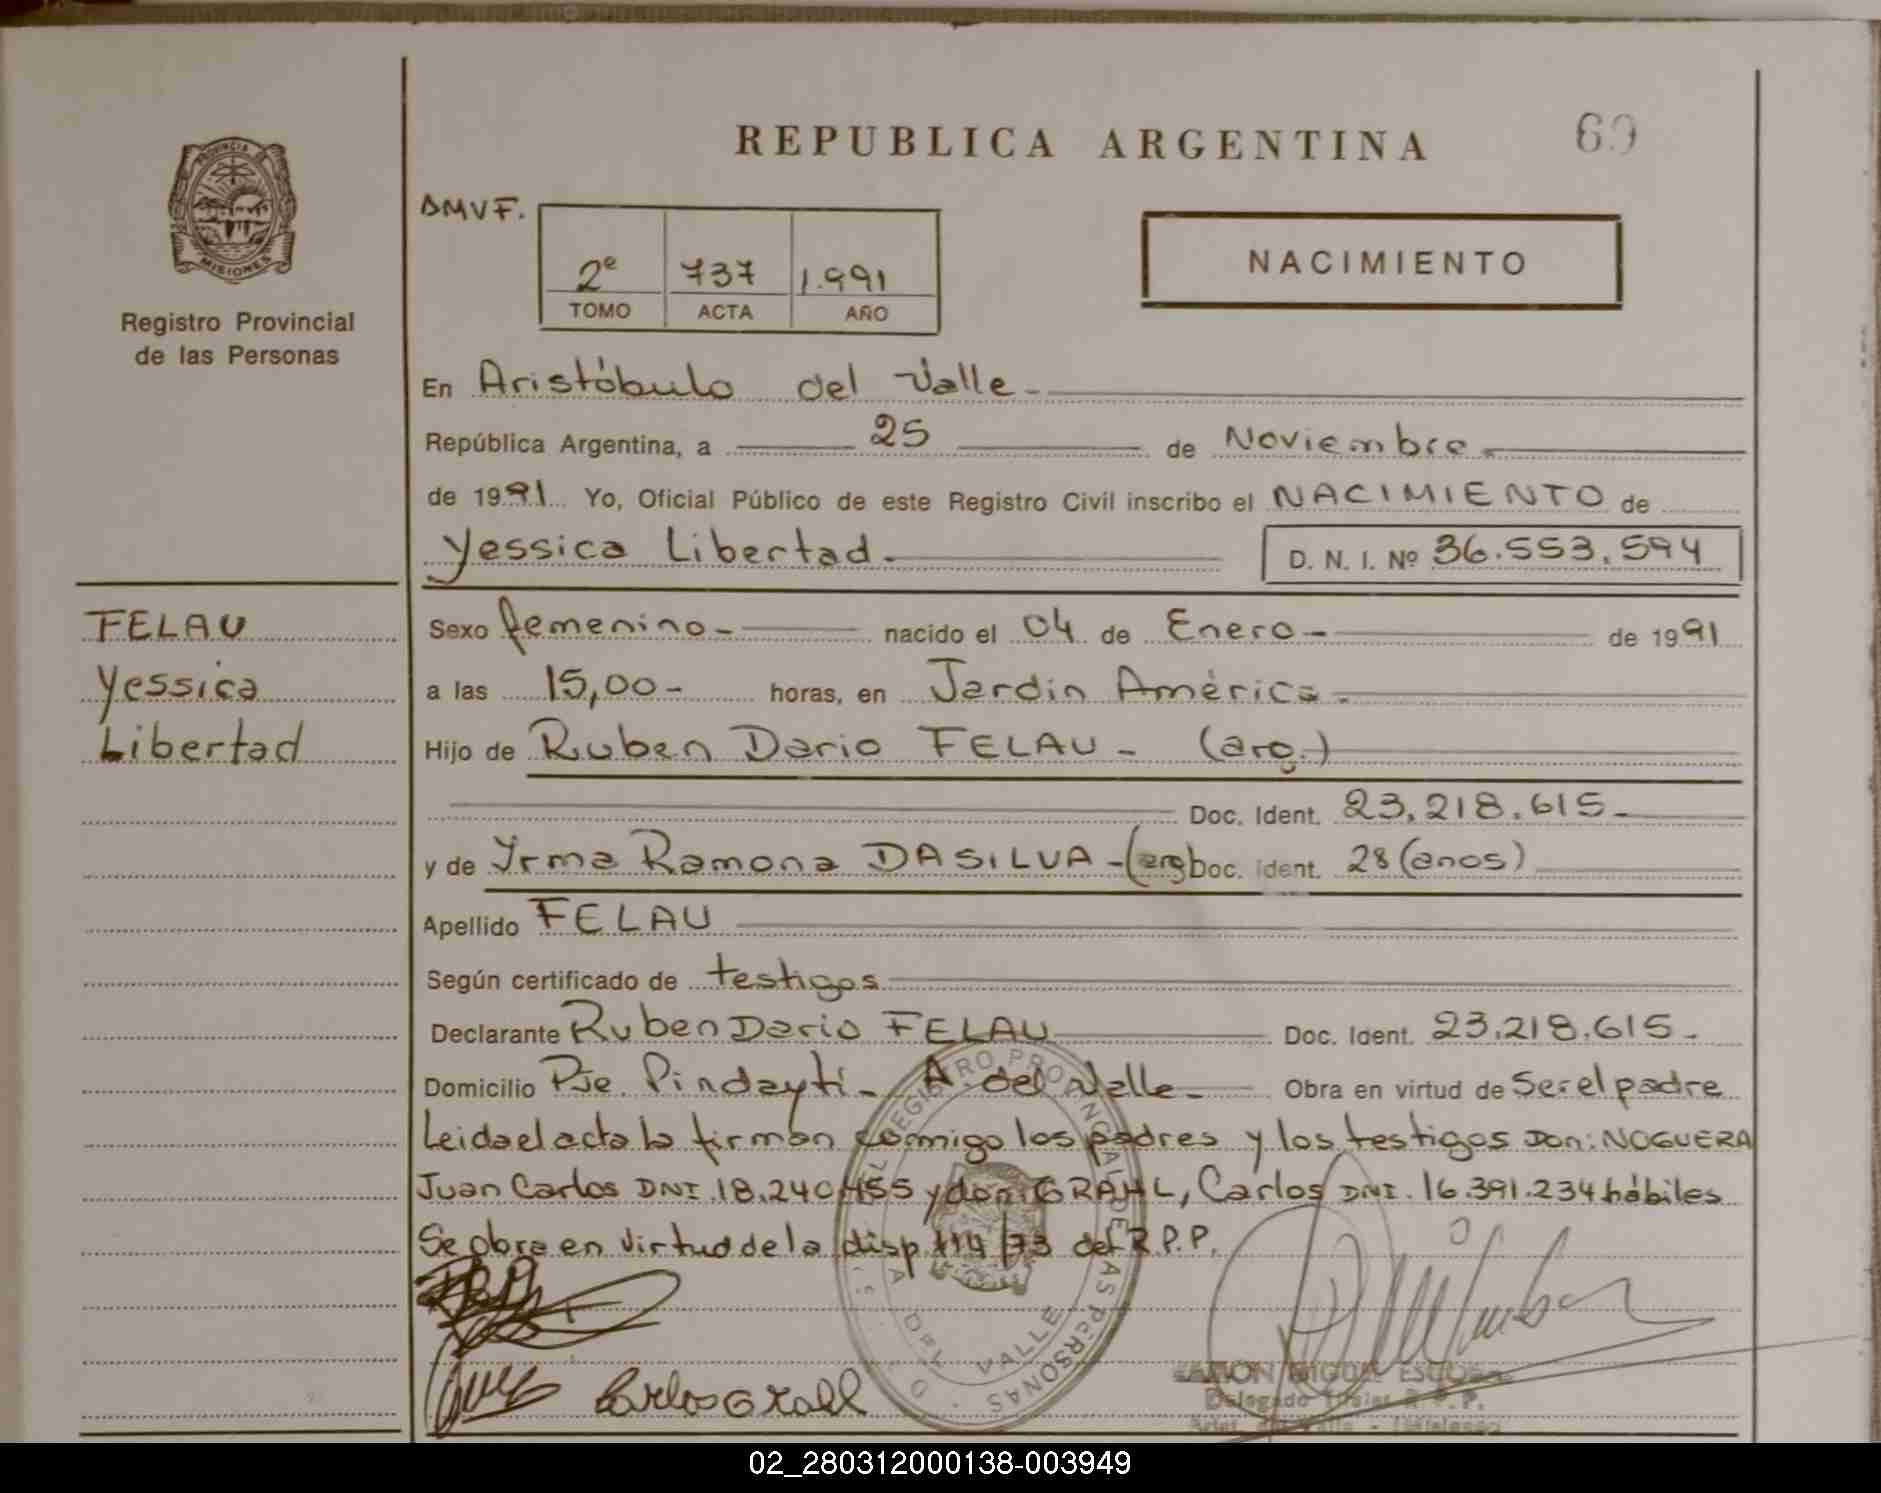 REPUBLICA ARGENTINA
69
PROVINCIA DE
MISIONES
Registro Provincial
de las Personas
DMVF.
2º 737 1.991
TOMO ACTA AÑO
NACIMIENTO
En Aristóbulo del Valle -
República Argentina, a 25 de Noviembre -
de 1991 Yo, Oficial Público de este Registro Civil inscribo el NACIMIENTO de
Yessica Libertad - D. N. I. Nº 36.553.594
FELAU
Yessica
Libertad
Sexo femenino - nacido el 04 de Enero - de 1991
a las 15,00 - horas, en Jardin América -
Hijo de Ruben Dario FELAU - (arg.)
Doc. Ident. 23.218.615 -
y de Yrma Ramona DASILVA - (arg) Doc. Ident. 28 (anos)
Apellido FELAU
Según certificado de testigos
Declarante Ruben Dario FELAU Doc. Ident. 23.218.615 -
Domicilio Pje. Pindaytí - A. del Valle - Obra en virtud de Ser el padre
Leida el acta la firman conmigo los padres y los testigos Don: NOGUERA
Juan Carlos DNI. 18.240.455 y don: GRAHL, Carlos DNI. 16.391.234 hábiles
Se obra en virtud de la disp. 114/73 del R.P.P.
REGISTRO PROVINCIAL DE LAS PERSONAS
DEL VALLE
Carlos Grahl
RAMON MIGUEL ESCOBAR
Delegado Titular R.P.P.
02_280312000138-003949